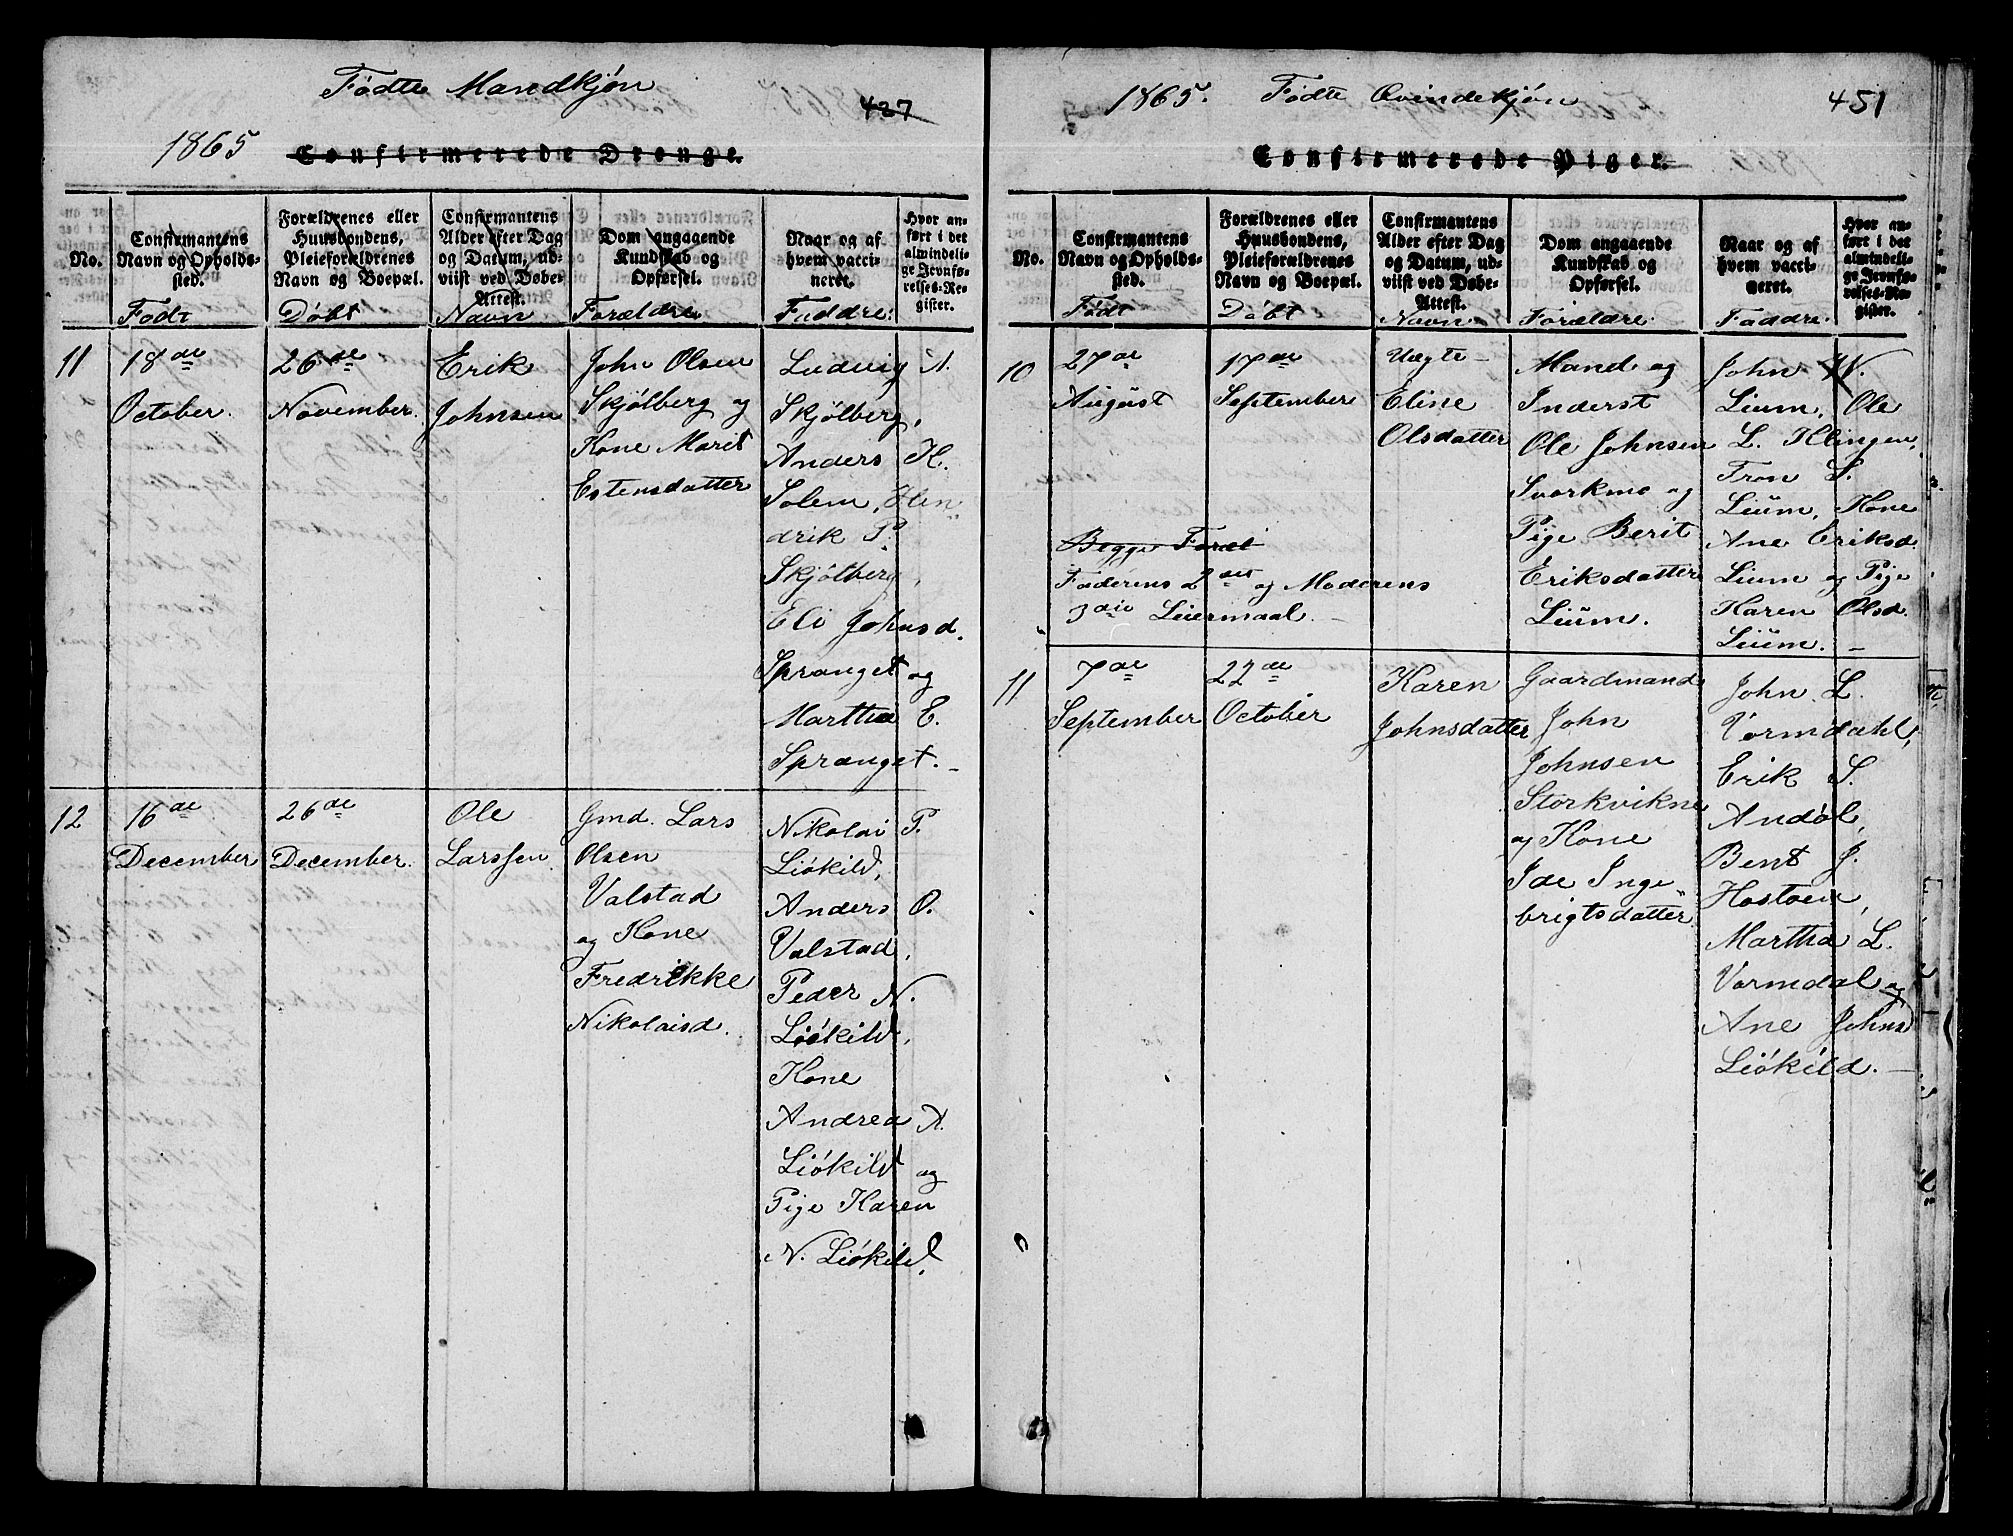 Fødte Mandkjøn
427
1865
Confirmerede Drenge.
No.
Confirmantens Navn og Opholds-sted.
Forældrenes eller Huusbondens, Pleieforældrenes Navn og Boepæl.
Confirmantens Alder efter Dag og Datum, ud-viist ved Døbe-Attest.
Dom angaaende Kundskab og Opførsel.
Naar og af hvem vacci-neret.
Hvor an-ført i det almindeli-ge Jevnfø-relses-Re-gister.
Født
Døbt
Navn
Forældre
Faddre:
11
18de
October.
26de
November.
Erik
Johnsen
John Olsen
Skjølberg og
Kone Marit
Estensdatter
Ludvig A.
Skjølberg,
Anders H.
Solem, Hen-
drik P.
Skjølberg,
Eli Johnsd.
Spranget og
Martha E.
Spranget.
12
16de
December
26de
December.
Ole
Larssen
Gmd. Lars
Olsen
Valstad
og Kone
Fredrikke
Nikolaisd.
Nikolai P.
Liøkild,
Anders O.
Valstad,
Peder N.
Liøkild,
Kone
Andrea A.
Liøkild og
Pige Karen
N. Liøkild.
1865. Fødte Qvindekjøn
451
Confirmerede Piger.
No.
Confirmantens Navn og Opholds-sted.
Forældrenes eller Huusbondens, Pleieforældrenes Navn og Boepæl.
Confirmantens Alder efter Dag og Datum, ud-viist ved Døbe-Attest.
Dom angaaende Kundskab og Opførsel.
Naar og af hvem vacci-neret.
Hvor an-ført i det almindeli-ge Jevnfø-relses-Re-gister.
Født
Døbt
Navn
Forældre.
Faddre.
10
27de
August
17de
September
Uægte
Eline
Olsdatter
Mand og
Inderst
Ole Johnsen
Svorkmo og
Pige Berit
Eriksdatter
Lium.
John
Lium, Ole
L. Klingen,
Tron S.
Lium, Kone
Ane Eriksd.
Lium og Pige
Karen Olsd.
Lium.
Begge Foræl
Faderens 2det og Moderens
3die Leiermaal.
11
7de
September
22de
October
Karen
Johnsdatter
Gaardmand
John
Johnsen
Storkvikne
og Kone
Ide Inge-
brigtsdatter
John L.
Vormdahl,
Erik S.
Andøl,
Bent J.
Hostoen,
Martha L.
Vormdal og
Ane Johnsd
Liøkild.